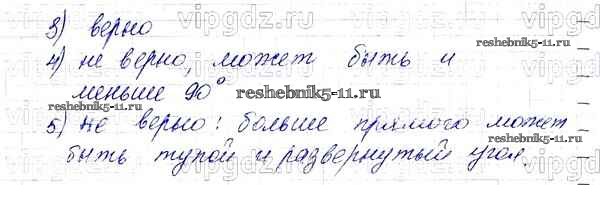 3) верно
4) не верно, может быть и
меньше 90°
5) не верно: больше прямого может
быть тупой и развернутый угол.
reshebnik5-11.ru
reshebnik5-11.ru
reshebnik5-11.ru
reshebnik5-11.ru
vipgdz.ru
vipgdz.ru
vipgdz.ru
vipgdz.ru